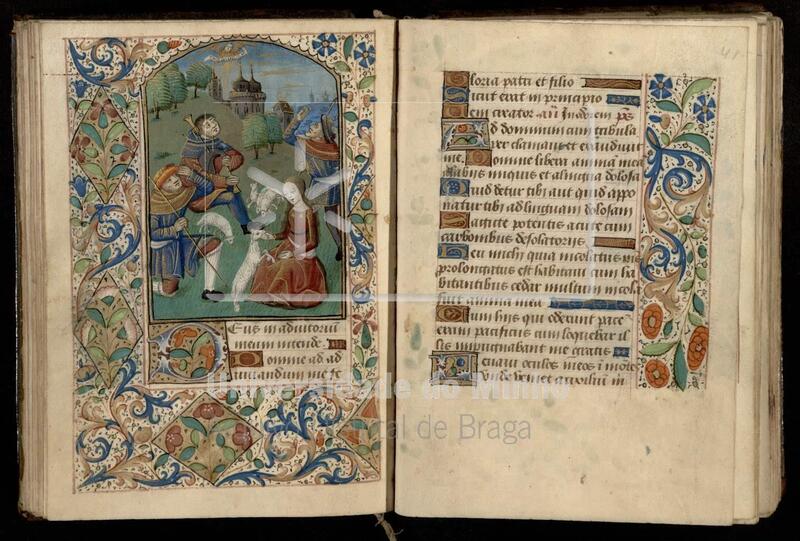 Deus in adiutoriū
meum intende.
Domine ad ad
iuuandum me fe
41
Gloria patri et filio
Sicut erat in principio
ād dominum cum tribula
rer clamaui et exaudiuit
me. Domine libera anima mea
labiis iniquis et a lingua dolosa
Quid detur tibi aut quid appo
natur tibi ad linguam dolosam
Sagitte potentis acute cum
carbonibus desolatoriis
Heu michi quia incolatus
prolongatus est habitaui cum ha
bitantibus cedar multum incola
fuit anima mea
Cum hiis qui oderunt pace
eram pacificus cum loquebar il
lis impugnabant me gratis
Leuaui oculos meos ī mōte
Universidade do Minho
de Braga